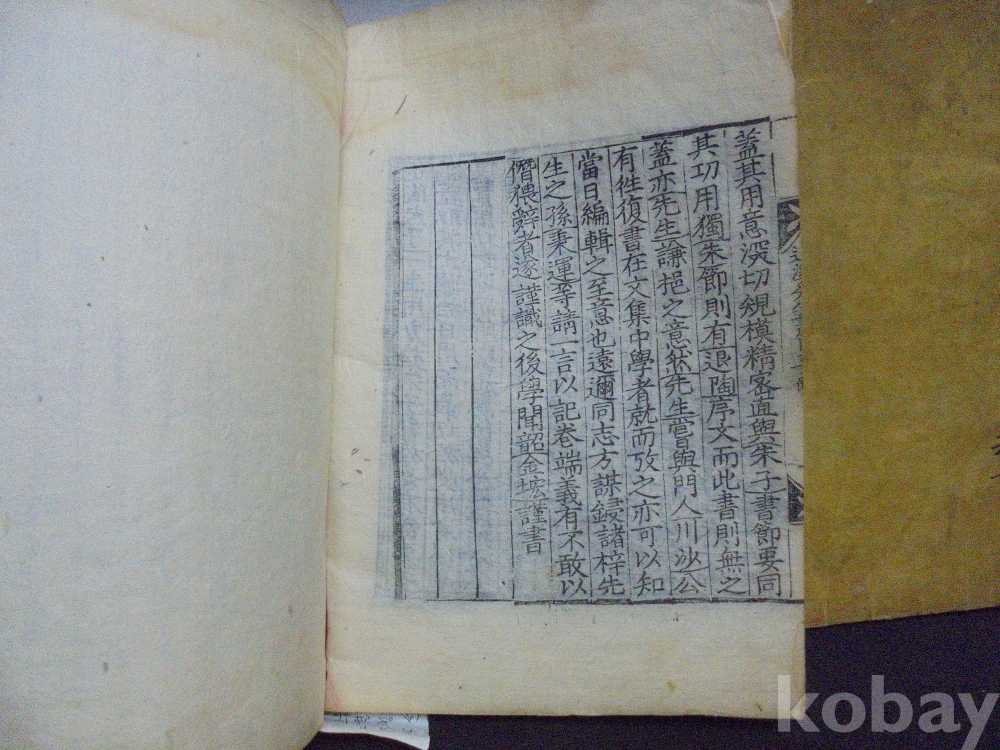 蓋其用意深切規模精密直與朱子書節要同
其功用獨朱節則有退陶序文而此書則無之
蓋亦先生謙挹之意然先生嘗與門人川沙公
有徃復書在文集中學者就而攷之亦可以知
當日編輯之至意也遠邇同志方謀鋟諸梓先
生之孫秉運等請一言以記卷端義有不敢以
僭猥辭者遂謹識之後學聞韶金㙆謹書
kobay